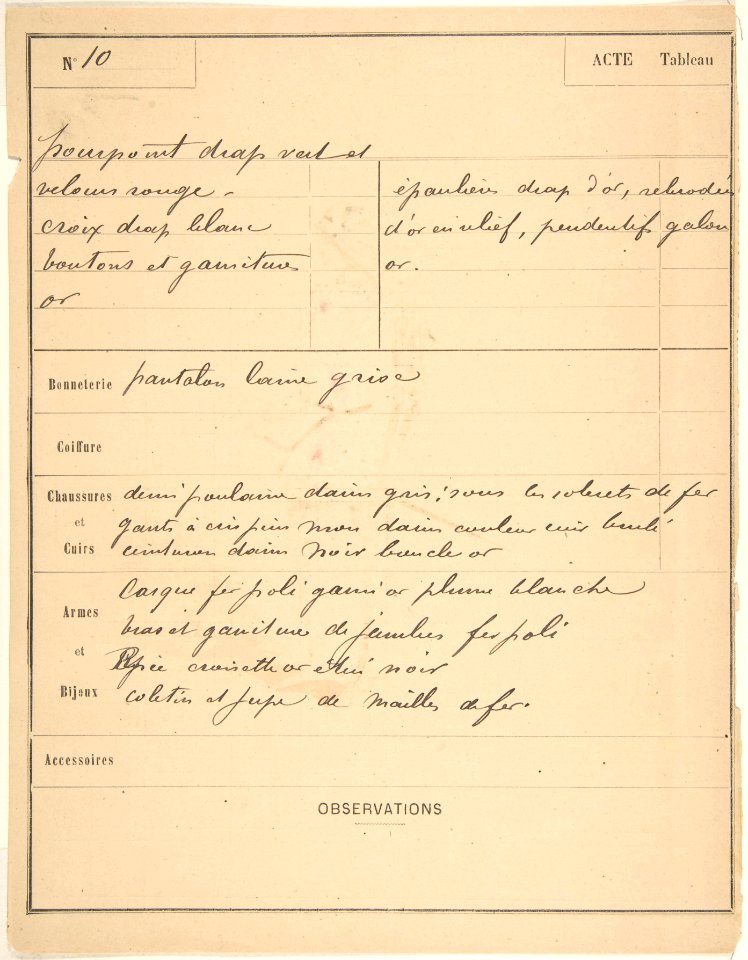 N° 10
ACTE Tableau
pourpoint drap vert et
velours rouge -
croix drap blanc
boutons et garnitures
or
épaulières drap d'or, rebrodées
d'or en relief, pendentifs galon
or.
Bonneterie pantalon laine grise
Coiffure
Chaussures et Cuirs
demi poulaine daim gris, sous les solerets de fer
gants à crispins daim couleur cuir brulé
ceinturon daim noir boucle or
Armes et Bijoux
Casque fer poli garni or plume blanche
bras et garniture de jambes fer poli
Epée croisette or étui noir
coletin et jupe de mailles de fer.
Accessoires
OBSERVATIONS